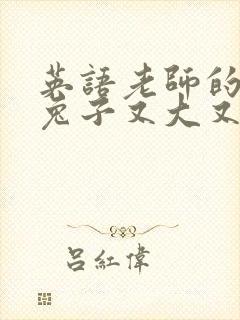 英語老師的
兔子又大又
吕紅偉